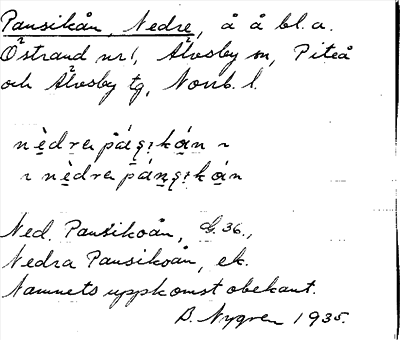 Pausikån, Nedre, å å bl.a.
Östrand nr 1, Älvsby sn, Piteå
och Älvsby tg, Norrb. l.
nèdra páu̯sikån ~
~ nèdra páu̯sikån
Ned. Pausikoån, G. 36.,
Nedra Pausikoån, ek.
Namnets uppkomst obekant.
B. Nygren 1935.